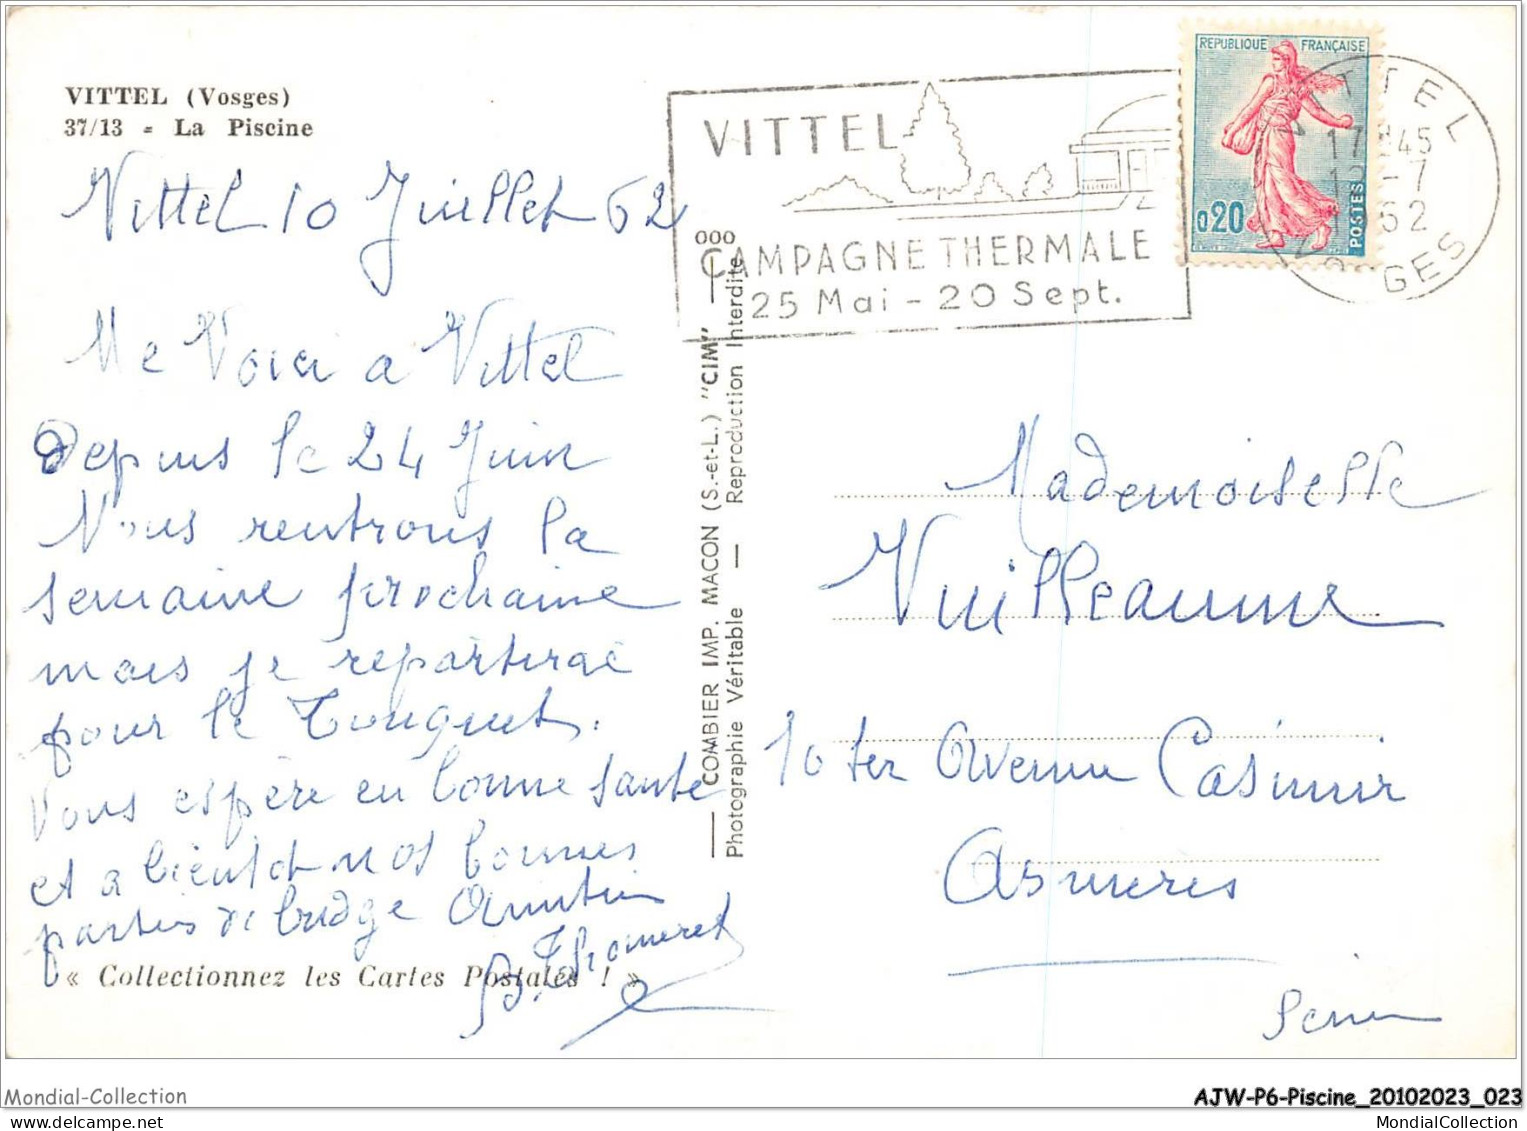 VITTEL (Vosges)
37/13 - La Piscine
Vittel 10 Juillet 62
Me Voici a Vittel
depuis le 24 Juin
Nous rentrons la
semaine prochaine
mais je repartirai
pour le Touquet.
Vous espère en bonne santé
et a bientot nos bonnes
parties de bridge Amitiés
« Collectionnez les Cartes Postales ! »
VITTEL
CAMPAGNE THERMALE
25 Mai - 20 Sept.
REPUBLIQUE FRANÇAISE
0,20
POSTES
VITTEL
VOSGES
COMBIER IMP. MACON (S.-et-L.) "CIM"
Photographie Véritable — Reproduction Interdite
Mademoiselle
Vuilleaume
10 ter Avenue Casimir
Asnières
Seine
Mondial-Collection
AJW-P6-Piscine_20102023_023
MondialCollection